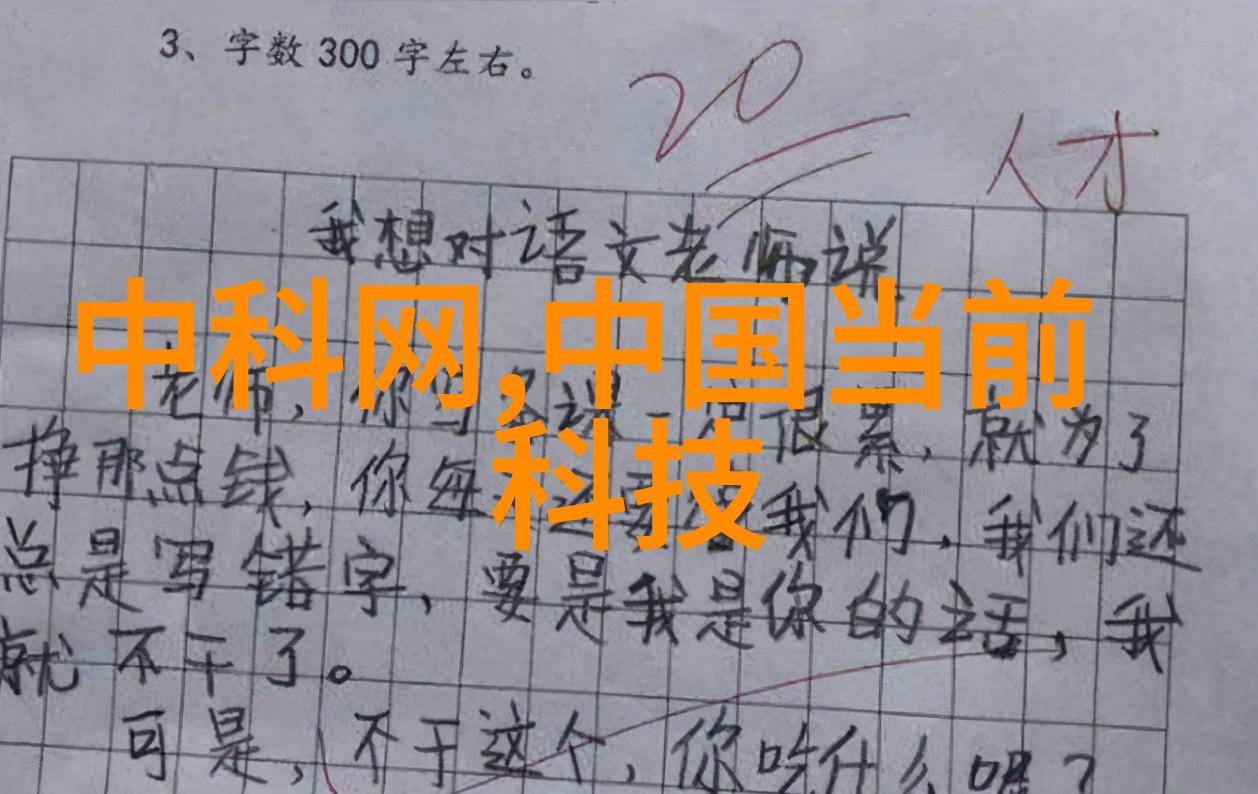 3、字数300字左右。
20
人才
我想对语文老师说
中科网,中国当前
科技
老师，你写 课一定很累，就为了
挣那点钱，你每 我们，我们还
总是写错字，要是我是你的话，我
就不干了。
可是，不干这个，你吃什么呢？